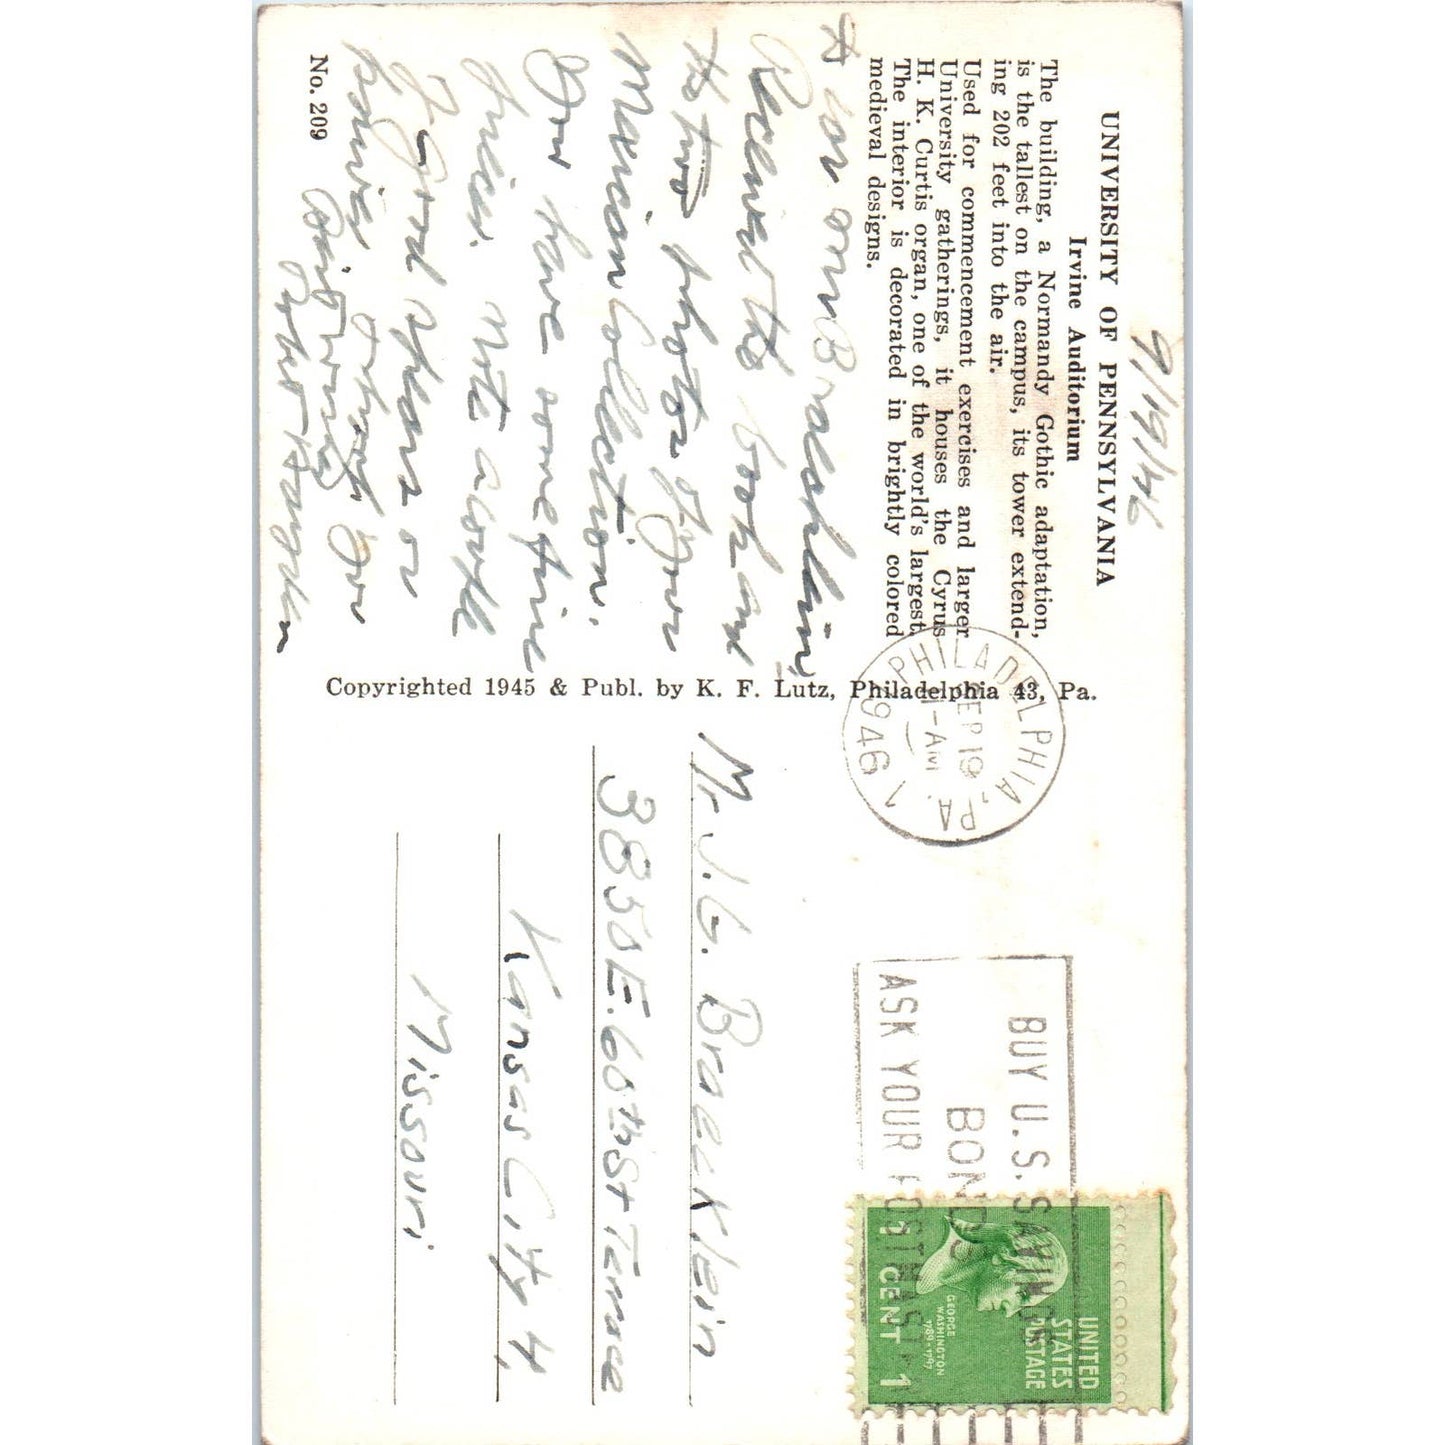 9/19/46
UNIVERSITY OF PENNSYLVANIA
Irvine Auditorium
The building, a Normandy Gothic adaptation,
is the tallest on the campus, its tower extend-
ing 202 feet into the air.
Used for commencement exercises and larger
University gatherings, it houses the Cyrus
H. K. Curtis organ, one of the world's largest.
The interior is decorated in brightly colored
medieval designs.
Bracklein,
Received the book and
the two photos of your
Mexican Collection.
You have some fine
note a couple
good spears
No. 209
Copyrighted 1945 & Publ. by K. F. Lutz, Philadelphia 43, Pa.
PHILADELPHIA, PA. 1
SEP 19
1-AM
1946
BUY U.S. SAVINGS
BONDS
ASK YOUR POSTMASTER
UNITED
STATES
POSTAGE
GEORGE
WASHINGTON
1789-1797
1 CENT 1
Mr. J. G. Bracklein
3850 E. 60th St Terrace
Kansas City 4,
Missouri